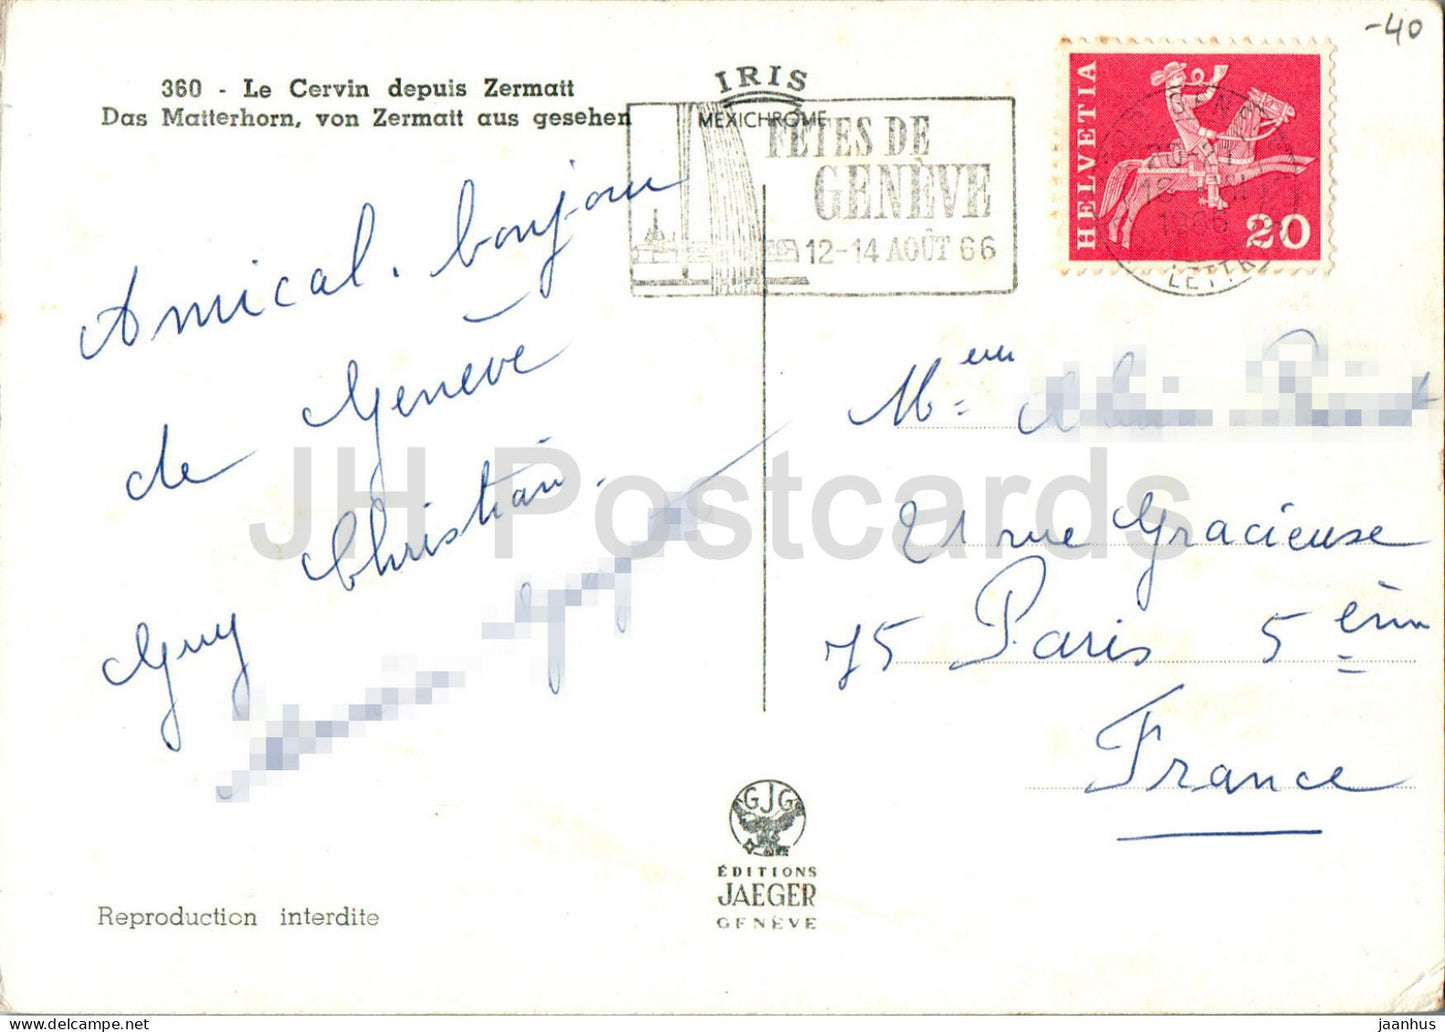 -40
360 - Le Cervin depuis Zermatt
Das Matterhorn, von Zermatt aus gesehen
IRIS
MEXICHROME
FÊTES DE
GENÈVE
12-14 AOÛT 66
HELVETIA
20
20-21
1966
LETTR
Amical. bonjour
de Genève
Christian.
Guy
Meue
21 rue Gracieuse
75 Paris 5 ème
France
JH Postcards
GJG
ÉDITIONS
JAEGER
GENÈVE
Reproduction interdite
www.delcampe.net
jaanhus